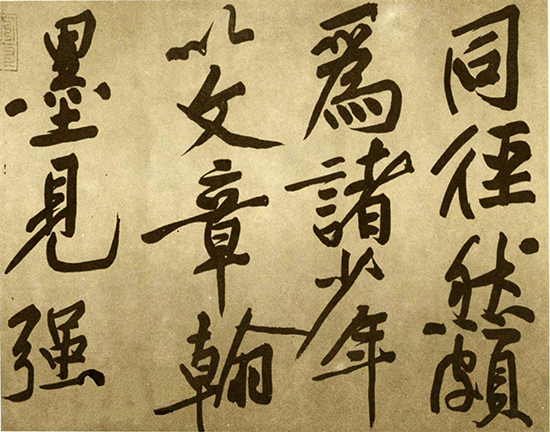 同徑然頗
爲諸少年
以文章翰
墨見强